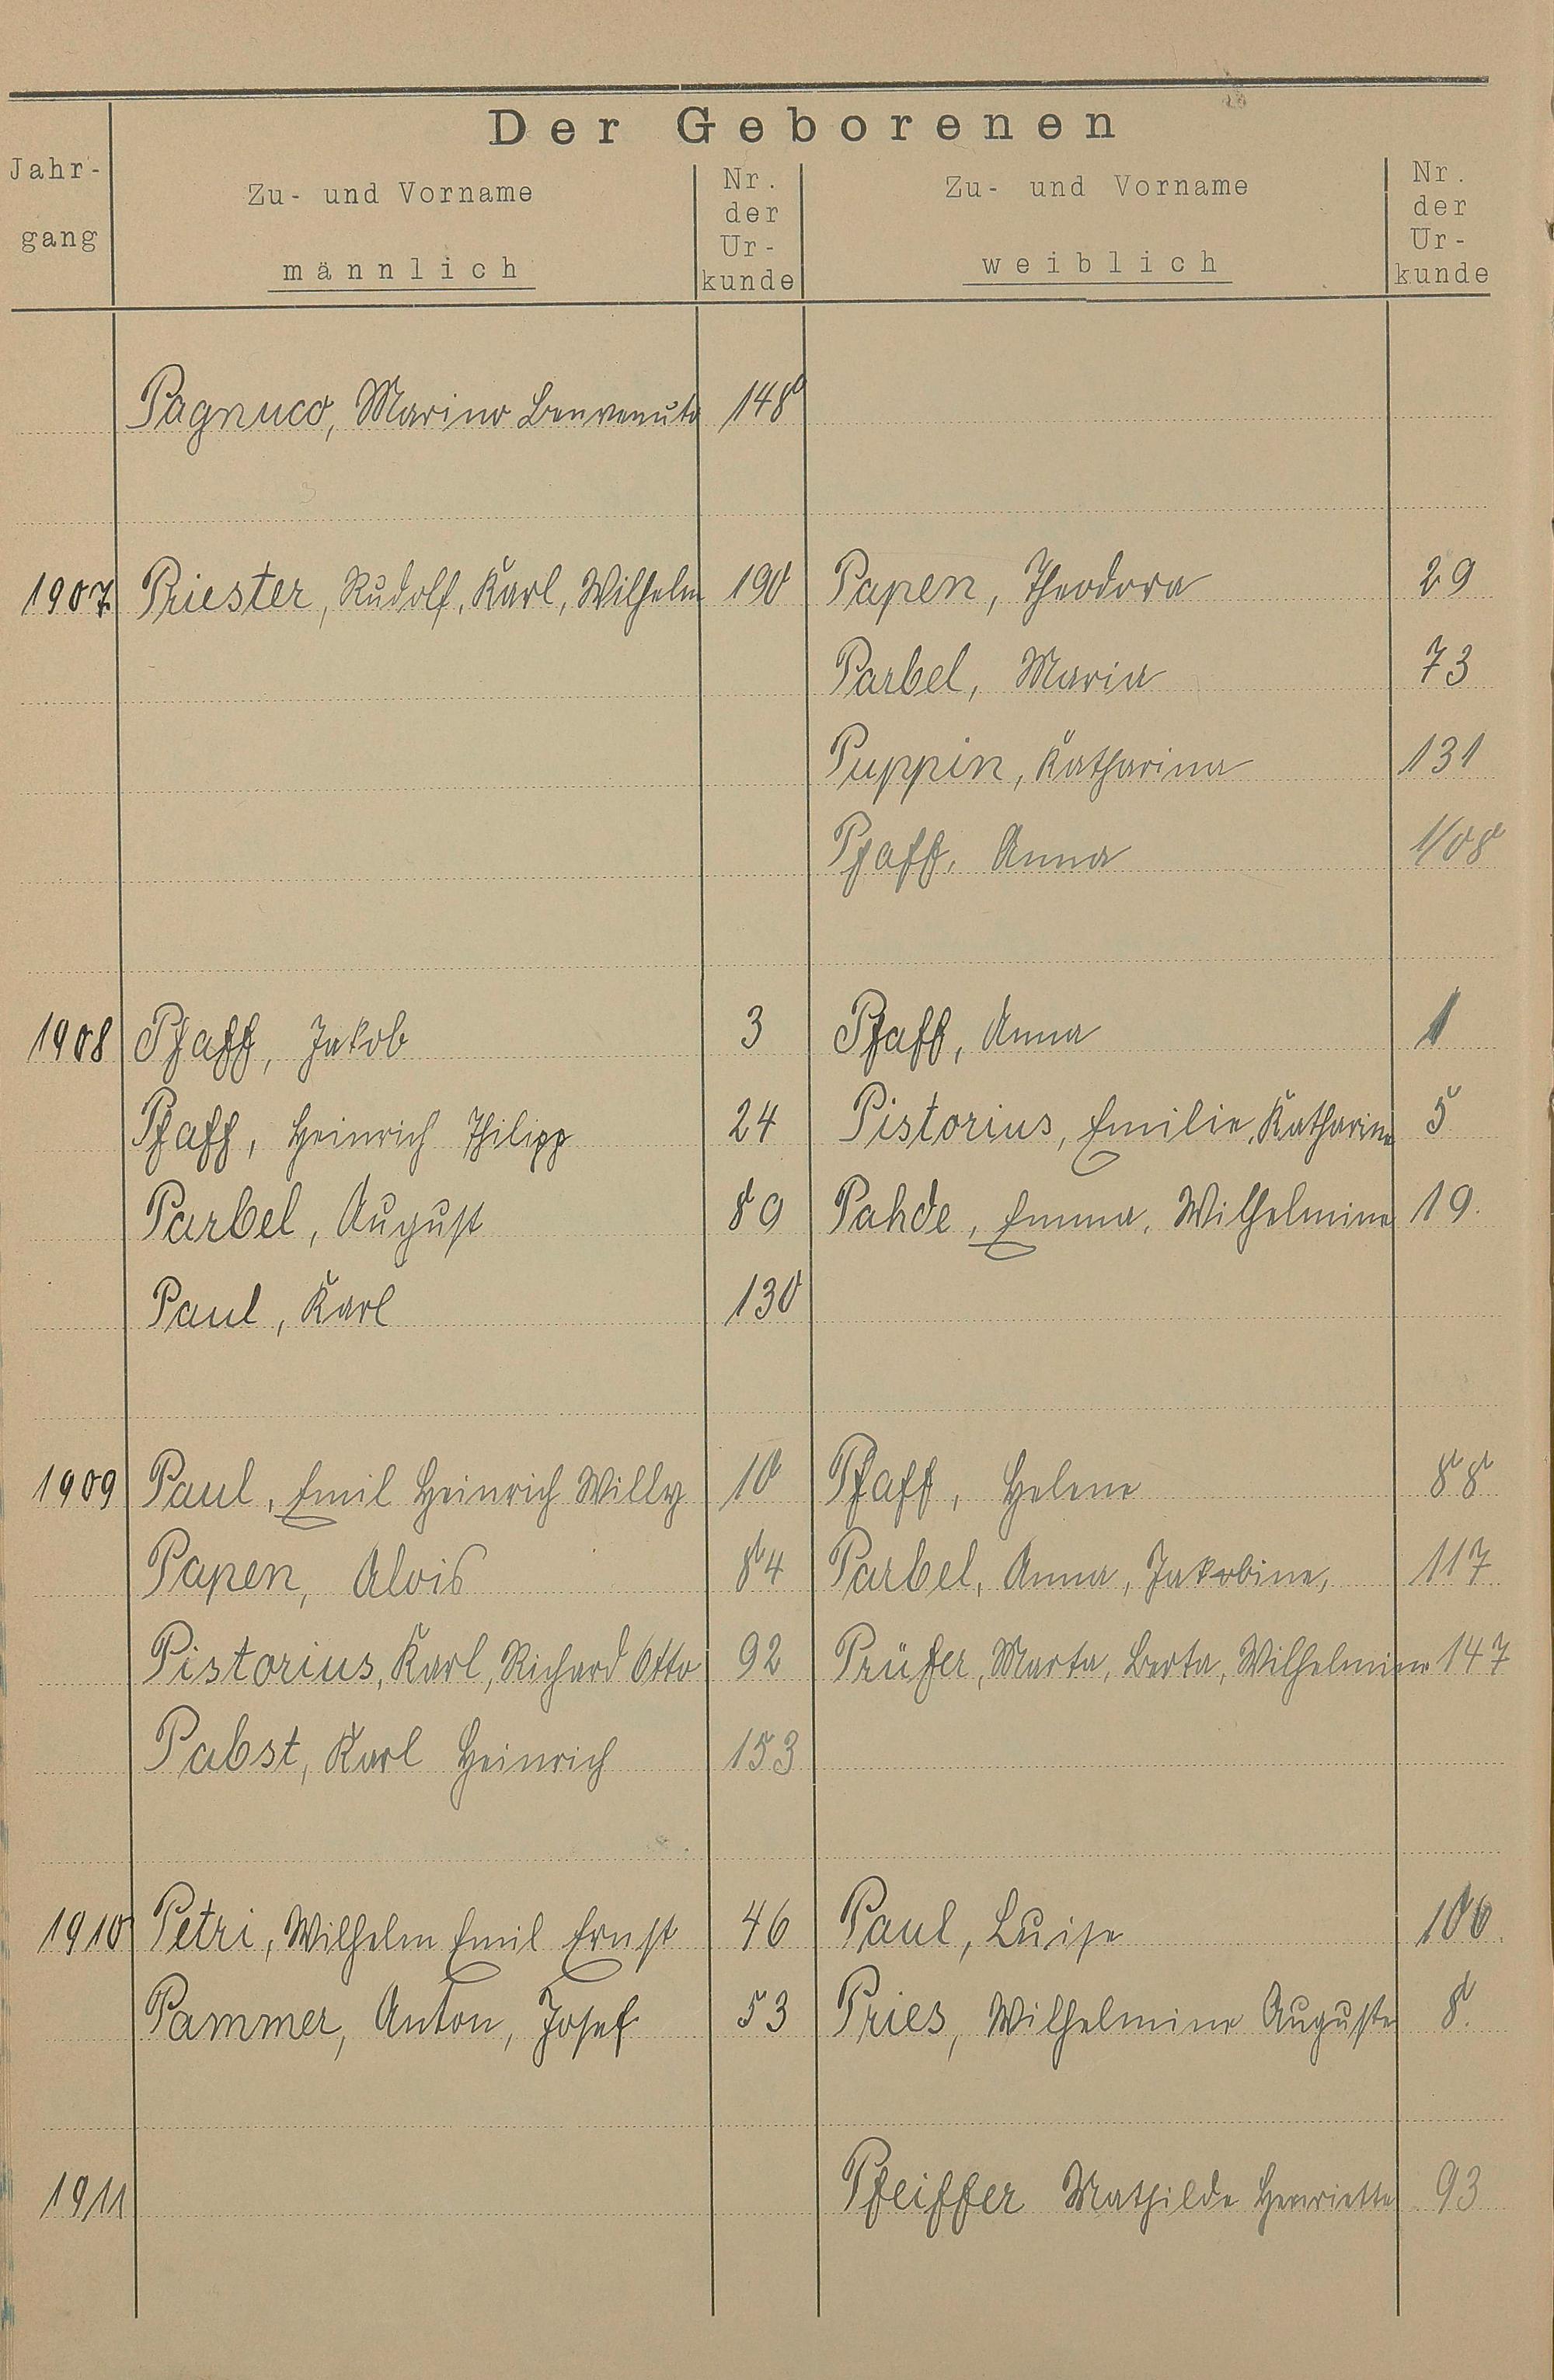 Der Geborenen
Jahr-
gang
Zu- und Vorname
männlich
Nr.
der
Ur-
kunde
Zu- und Vorname
weiblich
Nr.
der
Ur-
kunde
Pagnuco, Marino Benvenuto 148
1907 Priester, Rudolf, Karl, Wilhelm 190 Papen, Theodora 29
Parbel, Maria 73
Puppin, Katharina 131
Pfaff, Anna 1/08
1908 Pfaff, Jakob 3 Pfaff, Anna 1
Pfaff, Heinrich Philipp 24 Pistorius, Emilie, Katharina 5
Parbel, August 89 Pahde, Emma, Wilhelmine 19.
Paul, Karl 130
1909 Paul, Emil Heinrich Willy 10 Pfaff, Helene 88
Papen, Alois 84 Parbel, Anna, Jakobine, 117
Pistorius, Karl, Richard Otto 92 Prüfer, Marta, Berta, Wilhelmine 147
Pabst, Karl Heinrich 153
1910 Petri, Wilhelm Emil Ernst 46 Paul, Luise 106.
Pammer, Anton, Josef 53 Pries, Wilhelmine Auguste 8.
1911 Pfeiffer Mathilde Henriette 93